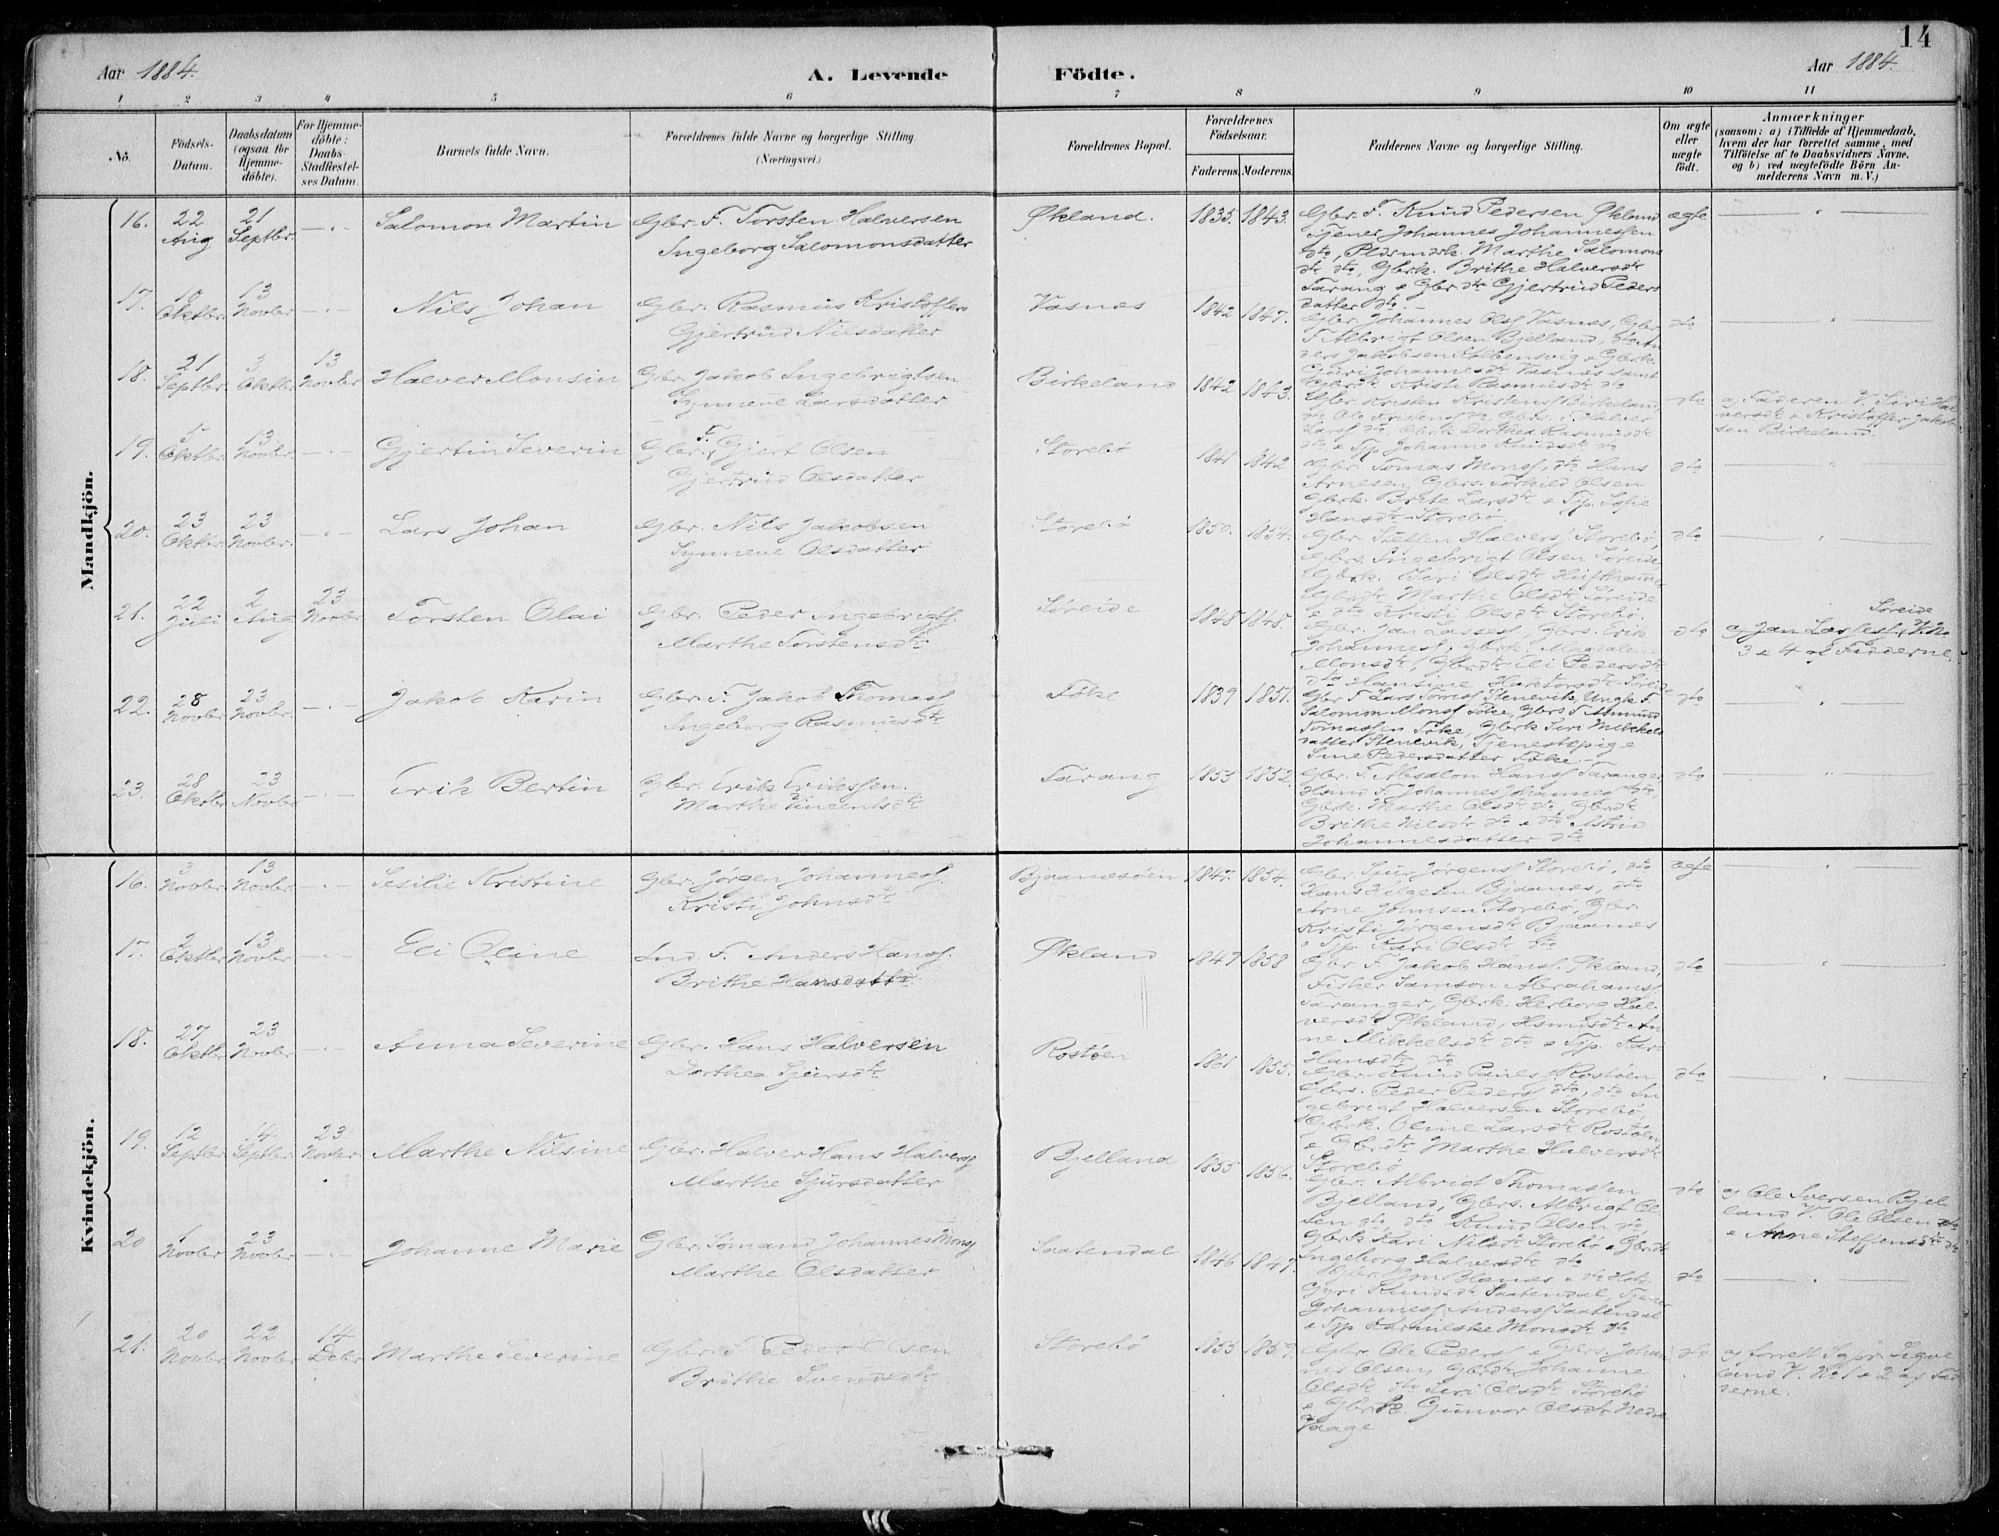 14
Aar 1884.
A. Levende
Födte.
Aar 1884.
1 2 3 4 5 6 7 8 9 10 11
No.
Födsels-
Datum.
Daabsdatum
(ogsaa for
Hjemme-
döbte).
For Hjemme-
döbte:
Daabs-
Stadfæstel-
ses Datum.
Barnets fulde Navn.
Forældrenes fulde Navne og borgerlige Stilling.
(Næringsvei.)
Forældrenes Bopæl.
Forældrenes
Födselsaar.
Faderens.
Moderens.
Faddernes Navne og borgerlige Stilling.
Om ægte
eller
uægte
födt.
Anmærkninger
(saasom: a) i Tilfælde af Hjemmedaab,
hvem der har forrettet samme, med
Tilföielse af to Daabsvidners Navne,
og b) ved uægtefödte Börn An-
melderens Navn m. V.)
Mandkjön.
16. 22 Aug 21 Septbr. -"- Salomon Martin
Gbr. F. Torsten Halversen
Ingeborg Salomonsdatter
Økland. 1835. 1843.
Gbr. F. Knud Pedersen Økland
Tjener Johannes Johannessen
dto, Marthe Salomons
dtr dto, Gbrk. Brithe Halversdtr
Tarang & Gbrdtr Gjertrud Peders
datter dto.
ægte
17. 10 Oktbr. 13 Novbr -"- Nils Johan
Gbr. Rasmus Kristoffers
Gjertrud Nilsdatter
Vasnes 1842 1847.
Gbr. Johannes Olsf Vasnes, Gbr.
F. Albrigt Olsen Bjelland,
ders Jakobsen & Gbrk.
Guri Johannesdtr Vasnes samt
Gbrdtr Kristi Rasmusdtr dto
dto
18. 21 Septbr 3 Oktbr 13 Novbr Halver Monsin
Gbr. Jakob Ingebrigtsen
Synneve Larsdatter
Birkeland 1842 1843.
Gbr Kristen Kristens Birkeland,
dto
a, Faderen V. Siri Hal
versdtr & Kristoffer Jakob
sen Birkeland.
19. 5 Oktbr. 13 Novbr. -"- Gjertin Severin
Gbr. F. Gjert Olsen
Gjertrud Olsdatter
Storebø 1841 1842
Gbr. Tomas Monsf, dto Hans
Arnesen, Gbrs. Torkild Olsen
Gbrk. Brite Larsdtr & Tjp. Sofie
Hansdtr Storebø
dto
20. 23 Oktbr. 23 Novbr. -"- Lars Johan
Gbr. Nils Jakobsen
Synneve Olsdatter
Storebø 1850. 1854.
Gbr Steffen Halvers Storebø,
Gbrs. Ingebrigt Olsen Søreide
Gbrk. Siri Olsdtr
Gbrdtr Marthe Olsdtr Søreide
& dto Kristi Olsdtr Storebø.
dto
21. 22 Juli 2 Aug 23 Novbr Torsten Olai
Gbr. Peder Ingebrigtf.
Marthe Torstensdtr
Søreide 1848 1848.
Gbr. Jan Lassesf, Gbrs. Erik
Johannesf, Gbrk. Magdalene
Monsdtr, Gbrdtr Eli Pedersdtr
dto Hansine
dto
Søreide
a, Jan Lassesf, V. No
3 & 4 af Fadderne.
22. 28 Novbr. 23 Novbr. -"- Jakob Karin
Gbr. F. Jakob Thomasf
Ingeborg Rasmusdtr
Føke 1839 1851.
Gbr F Lars Stenevik, Ungk. F.
Salomon Monsf Føke, Gbrs F. Amund
Tomassen Føke, Gbrk Siri Mikkels
datter Stenevik, Tjenestepige
Sine Pedersdatter Føke.
dto
23. 28 Oktbr 23 Novbr -"- Erik Bertin
Gbr. Erik Eriksen.
Marthe Vincentsdtr
Tarang 1855 1852.
Gbr. F. Absalon Hansf Taranger,
Johannes Johannes dto,
Gbrk. Marthe Olsdtr dto, Gbrdtr
Brithe Nilsdtr dto & dto Astrid
Johannesdatter dto
dto
Kvindekjön.
16. 3 Novbr 13 Novbr. -"- Sesilie Kristine
Gbr. Jørgen Johannesf.
Kristi Johnsdtr
Bjaanæsøen 1847. 1854.
Gbr. Sjur Jørgensf Storebø, dto
Hans Helgesen Bjaanes, dto
Arne Johnsen Storebø, Gbr.
Kristi Jørgensdtr Bjaanes
& Tjp. Kari Olsdtr dto
ægte
17. 2 Oktbr 13 Novbr. -"- Eli Oline
Ind. F. Anders Hansf.
Brithe Hansdattr
Økland 1849 1858
Gbr F. Jakob Hansf. Økland,
Fisker Samson Abrahamsf
Taranger, Gbrk. Herborg Hal-
versdtr Økland, An
ne Mikkelsdtr dto & Tjp. Kari
Hansdtr dto
dto
18. 27 Oktbr 23 Novbr. -"- Anna Severine
Gbr. Hans Halversen
Dorthea Sjursdtr
Rostøen 1861 1855.
Gbr. Knud Rostøen
Gbrs. Peder Pedersf dto, dto In
gebrigt Halversen Storebø,
Gbrk. Oline Larsdtr Rostøen
& Gbrdtr Marthe Halversdtr
Storebø
dto
19. 12 Septbr 14 Septbr 23 Novbr Marthe Nilsine
Gbr. Halver Hans Halversf
Marthe Sjursdatter
Bjelland 1855 1856.
Gbr. Albrigt Thomassen
Bjelland, Gbrs. Albrigt Ol
sen dto, dto Knud Olsen dto
Gbrk Kari Nilsdtr Storebø & Gbrdtr
Ingeborg Halversdtr dto
dto
a, Ole Iversen Bjel
land V. Ole Olsen dto
& Anne Steffensdtr dto
20 1 Novbr 23 Novbr. -"- Johanne Marie
Gbr. Sømand Johannes Monsf
Marthe Olsdatter
Saatendal 1846 1847.
Guri Knudsdtr Saatendal, Tjener
Johannesf Andersf Saatendal
& Tjp Monsdtr dto
dto
21. 20 Novbr 22 Novbr 14 Debr Marthe Severine
Gbr. F. Peder Olsen
Brithe Svendsdtr
Storebø 1855 1859.
Gbr. Ole Pedersf & Gbrs. Johan
nes Olsen, Gbrdtr Johanne
Olsdtr dto Siri Olsdtr Storebø
& Gbrk. Gunvor Olsdtr Nedre
Vaage
dto
a, forrett Sgpr. Sigve
land V. No 1 & 2 af Fad
derne.